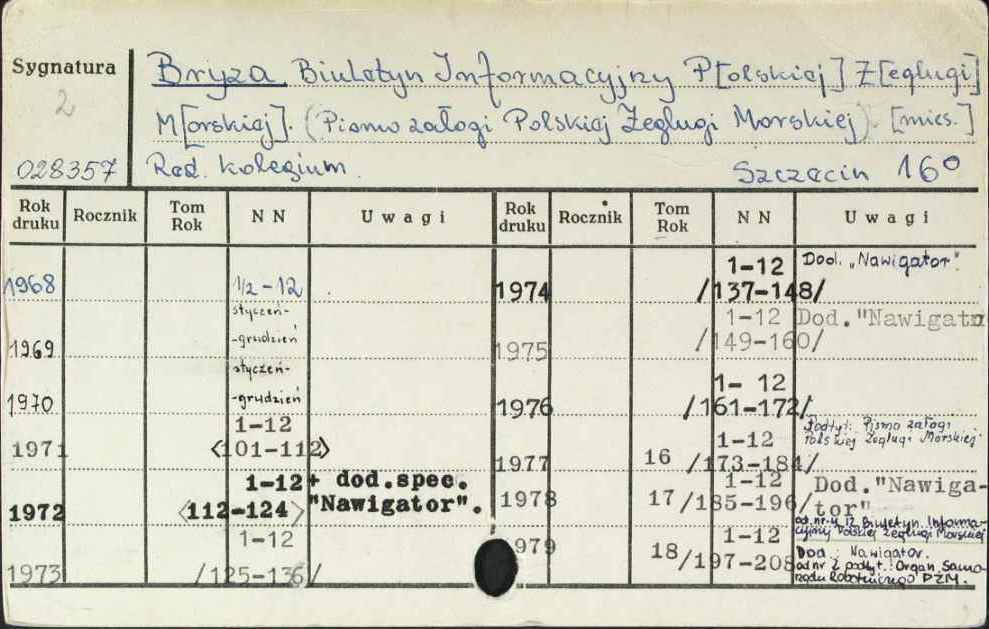 Sygnatura
2
028357
Bryza Biuletyn Informacyjny P[olskiej] Ż[eglugi]
M[orskiej]. (Pismo załogi Polskiej Żeglugi Morskiej). [mies.]
Red. kolegium. Szczecin 16°
Rok druku Rocznik Tom Rok NN Uwagi Rok druku Rocznik Tom Rok NN Uwagi
1968 1/2-12
1969 styczeń-
-grudzień
1970 styczeń-
-grudzień
1971 1-12
<101-112>
1972 1-12 + dod.spec.
<112-124> "Nawigator".
1973 1-12
/125-136/
1974 1-12 Dod. „Nawigator".
/137-148/
1975 1-12 Dod."Nawigato
/149-160/
1976 1- 12
/161-172/
1977 16 1-12
/173-184/
Podtyt: Pismo załogi
Polskiej Żeglugi Morskiej
1978 17 1-12 Dod."Nawiga-
/185-196/ tor"
od nr 4 Biuletyn Informa-
cyjny Polskiej Żeglugi Morskiej
979 18 1-12
/197-208
Dod: Nawigator.
od nr 2 podtyt.: Organ Samo-
rządu Robotniczego PŻM.